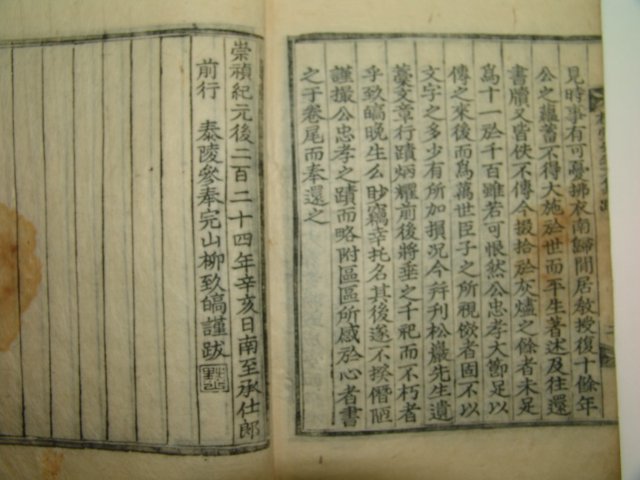 見時事有可憂拂衣南歸閒居敎授復十餘年
公之蘊蓄不得大施於世而平生著述及往還
書牘又皆佚不傳今掇拾於灰燼之餘者未足
爲十一於千百雖若可恨然公忠孝大節足以
傳之來後而爲萬世臣子之所視傚者固不以
文字之多少有所加損況今幷刊松巖先生遺
藁文章行蹟炳耀前後將垂之千祀而不朽者
乎致皜晩生么眇竊幸托名其後遂不揆僭陋
謹撮公忠孝之蹟而略附區區所感於心者書
之于卷尾而奉還之
崇禎紀元後二百二十四年辛亥日南至承仕郎
前行 泰陵參奉完山柳致皜謹跋